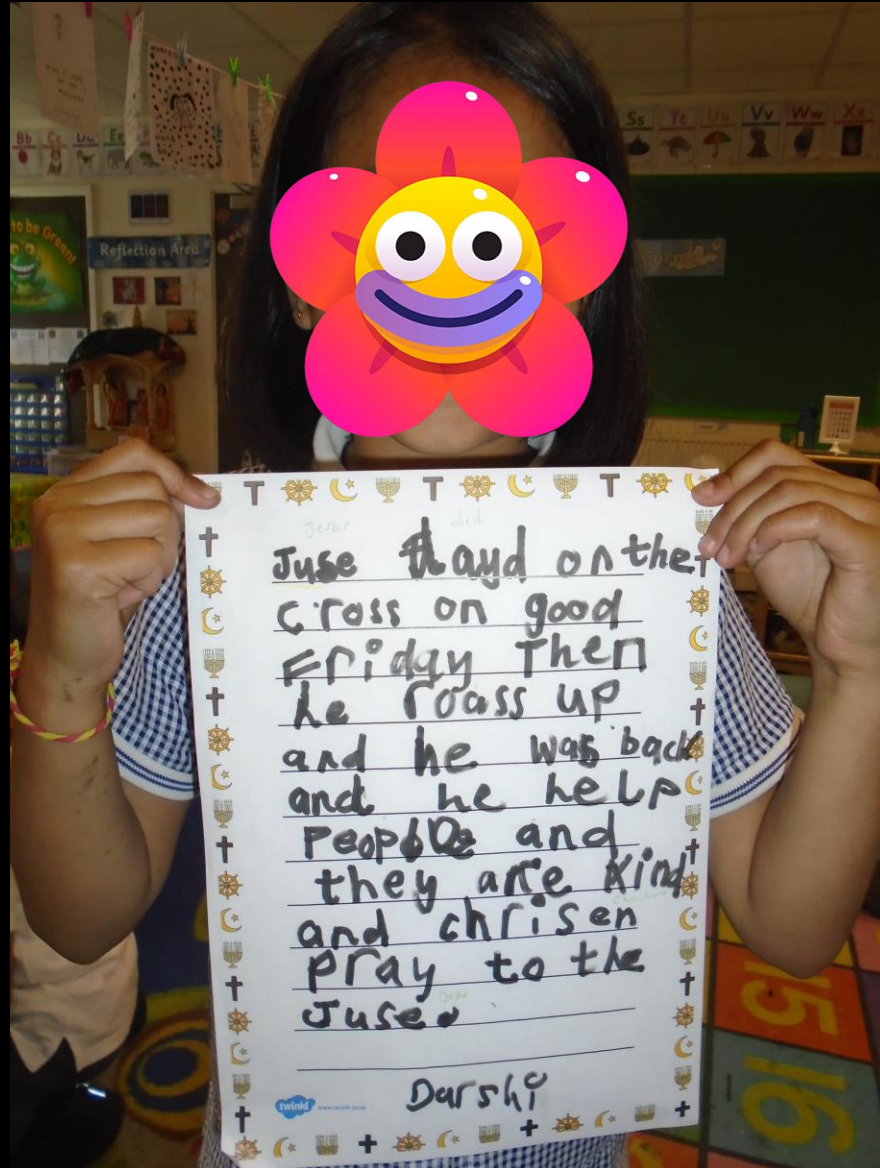 Bb Cc Dd Ee
Ss Tt Uu Vv Ww Xx
to be Green!
Reflection Area
Jesus died
Juse dayd on the
cross on good
Friday Then
he roass up
and he was back
and he help
People and
they are kind
Christians
and chrisen
pray to the
Jesus
Juse.
15
16
Darshi
twinkl www.twinkl.co.uk